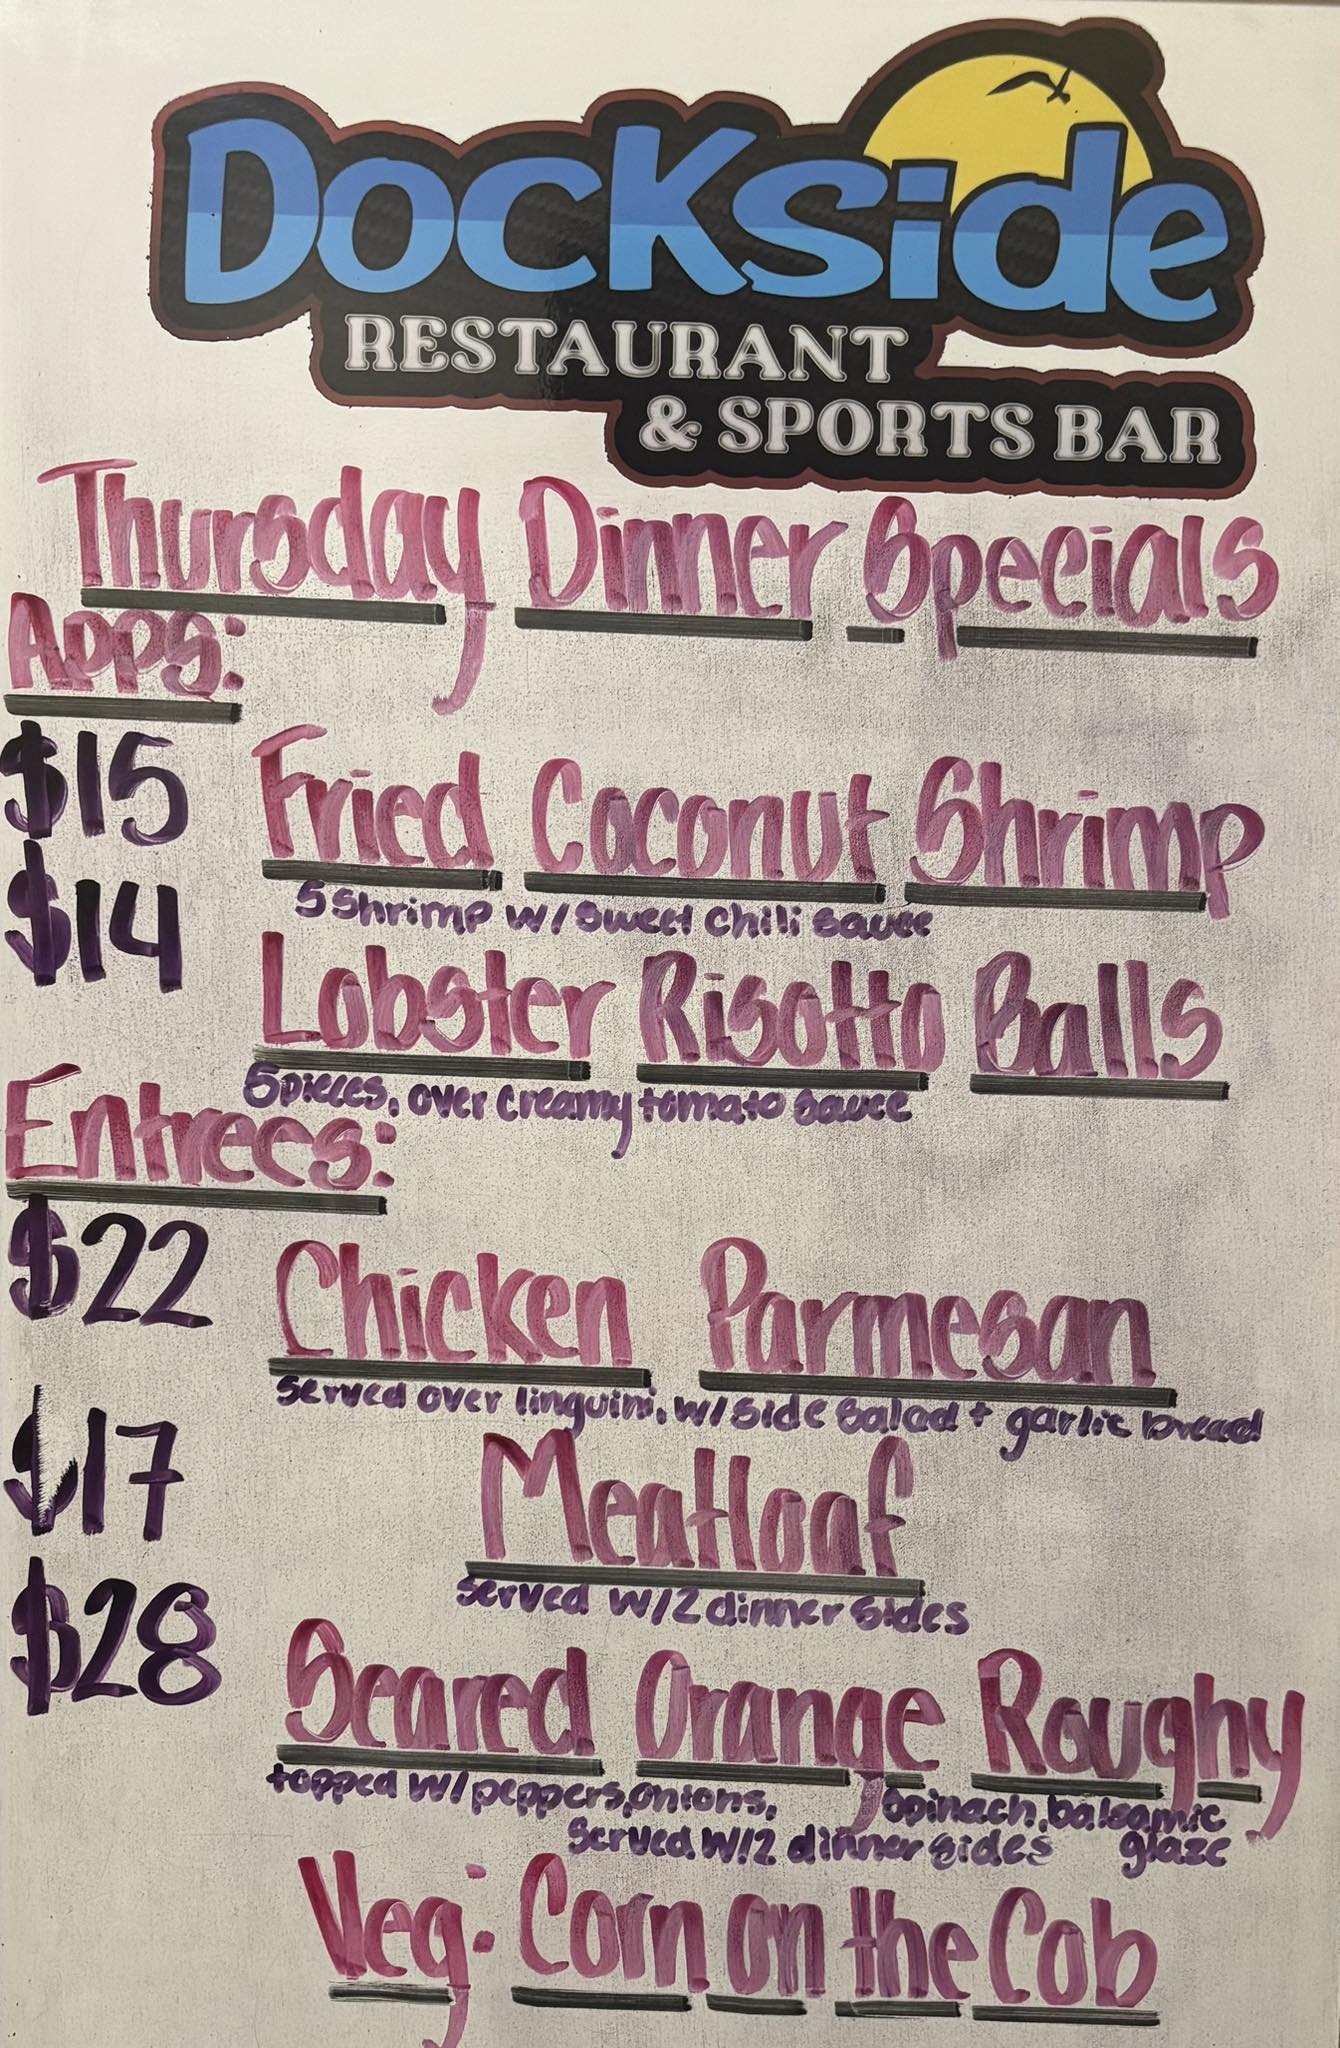 Dockside
RESTAURANT
& SPORTS BAR
Thursday Dinner Specials
Apps:
$15 Fried Coconut Shrimp
5 Shrimp w/ sweet chili sauce
$14 Lobster Risotto Balls
5 pieces, over creamy tomato sauce
Entrees:
$22 Chicken Parmesan
served over linguini, w/ side salad + garlic bread
$17 Meatloaf
served w/2 dinner sides
$28 Seared Orange Roughy
topped w/ peppers, onions, spinach, balsamic
served w/2 dinner sides glaze
Veg: Corn on the Cob